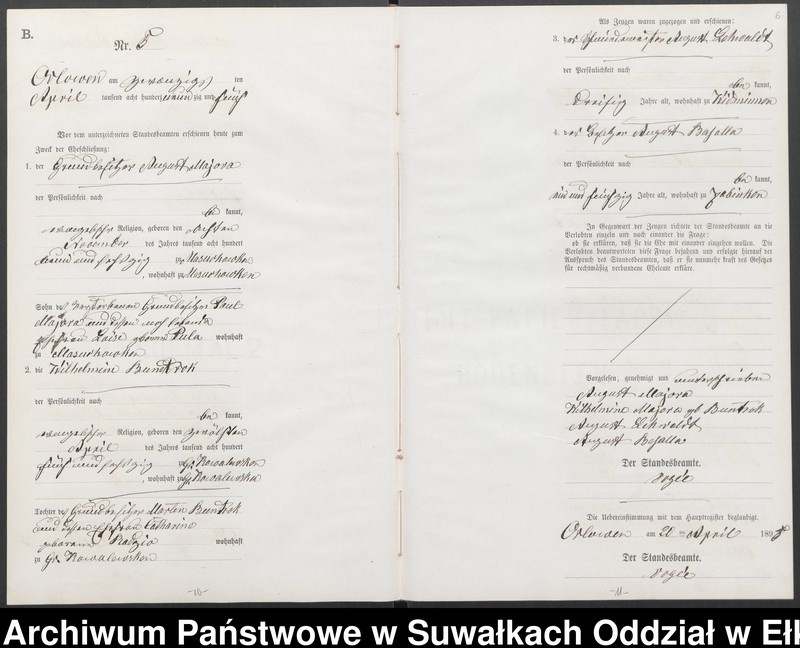 B.
Nr. 5
Orlowen am zwanzigsten
April tausend acht hundert neunzig und fünf
Vor dem unterzeichneten Standesbeamten erschienen heute zum
Zweck der Eheschließung:
1. der Grundbesitzer August Majora
der Persönlichkeit nach
be kannt,
evangelischer Religion, geboren den achten
November des Jahres tausend acht hundert
neun und sechszig zu Masuchowken
, wohnhaft zu Masuchowken
Sohn des verstorbenen Grundbesitzer Paul
Majora und dessen noch lebende
Ehefrau Luise geborene Pula wohnhaft
zu Masuchowken
2. die Wilhelmine Buntrok
der Persönlichkeit nach
be kannt,
evangelischer Religion, geboren den zwölften
April des Jahres tausend acht hundert
fünf und sechszig zu Gr. Kowalewsken
, wohnhaft zu Gr. Kowalewsken
Tochter des Grundbesitzer Martin Buntrok
und dessen Ehefrau Catharine
geborene Radzio wohnhaft
zu Gr. Kowalewsken
-10-
6
Als Zeugen waren zugezogen und erschienen:
3. der August Lehwaldt
der Persönlichkeit nach
be kannt,
dreißig Jahre alt, wohnhaft zu Widminnen
4. der Besitzer August Bajalla
der Persönlichkeit nach
be kannt,
ein und fünfzig Jahre alt, wohnhaft zu Zabinken
In Gegenwart der Zeugen richtete der Standesbeamte an die
Verlobten einzeln und nach einander die Frage:
ob sie erklären, daß sie die Ehe mit einander eingehen wollen. Die
Verlobten beantworteten diese Frage bejahend und erfolgte hierauf der
Ausspruch des Standesbeamten, daß er sie nunmehr kraft des Gesetzes
für rechtmäßig verbundene Eheleute erkläre.
Vorgelesen, genehmigt und unterschrieben
August Majora
Wilhelmine Majora geb Buntrok
August Lehwaldt
August Bajalla
Der Standesbeamte.
Die Uebereinstimmung mit dem Hauptregister beglaubigt.
Orlowen am 20 ten April 1895
Der Standesbeamte.
-11-
Archiwum Państwowe w Suwałkach Oddział w Ełk